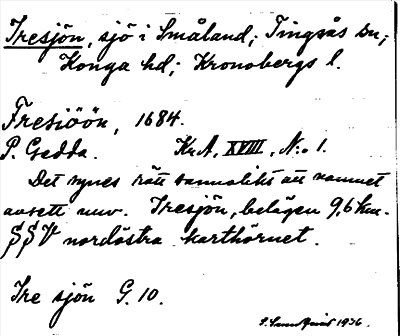 Tresjön, sjö i Småland; Tingsås sn;
Konga hd; Kronobergs l.
Fresiöön, 1684.
P. Gedda. Kr.A, XVIII, N:o 1.
Det synes rätt sannolikt att namnet
avsett nuv. Tresjön, belägen 9,6 km.
SSV nordöstra karthörnet.
Tre sjön G. 10.
1936.